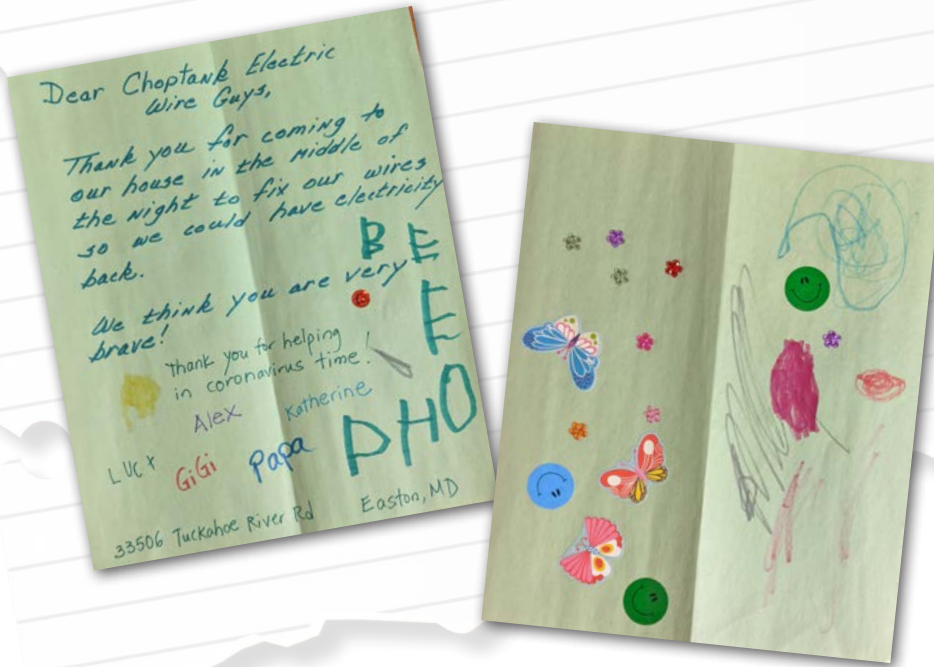 Dear Choptank Electric
Wire Guys,
Thank you for coming to
our house in the middle of
the night to fix our wires
so we could have electricity
back.
We think you are very
brave!
Thank you for helping
in coronavirus time!
Alex
Katherine
LUCY
GiGi
Papa
B E
E
PHO
33506 Tuckahoe River Rd
Easton, MD